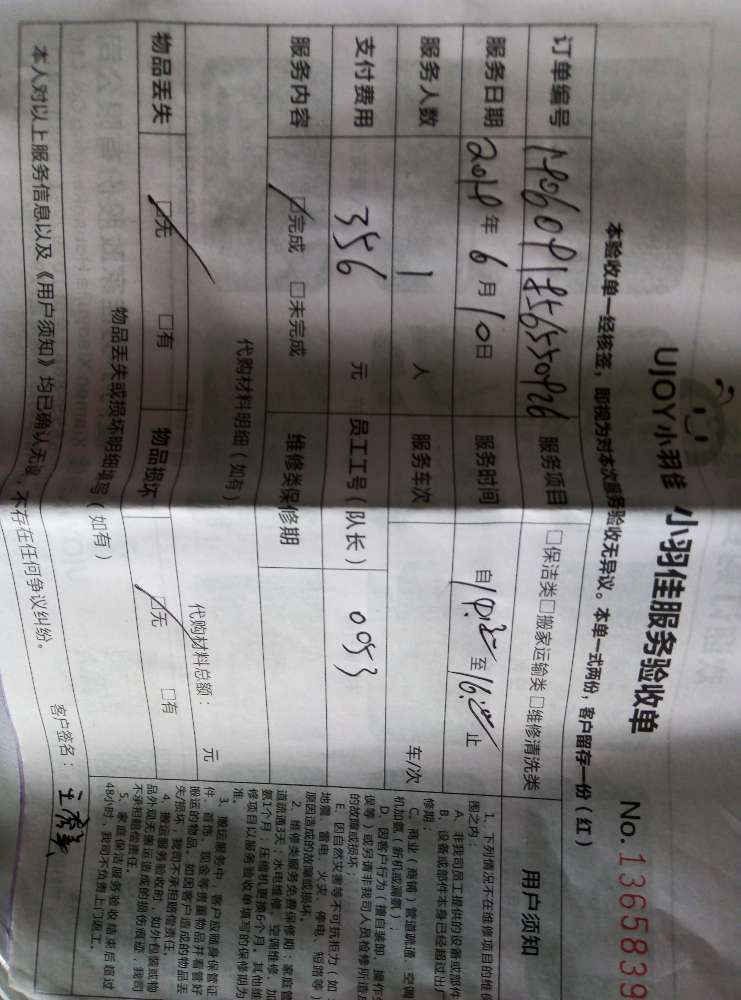 UJOY小羽佳 小羽佳服务验收单 No. 1365839
本验收单一经核签，即视为对本次服务验收无异议。本单一式两份，客户留存一份（红）
订单编号 服务项目 □保洁类□搬家运输类□维修清洗类
服务日期 2018年6月10日 服务时间 自 至 止
服务人数 1 人 服务车次 车/次
支付费用 356 元 员工工号（队长） 0053
服务内容 □完成 □未完成 维修类保修期
代购材料明细（如有） 代购材料总额： 元
物品丢失 □无 □有 物品损坏 □无 □有
物品丢失或损坏明细填写（如有）
本人对以上服务信息以及《用户须知》均已确认无误，不存在任何争议纠纷。 客户签名：
用户须知
1、下列情况不在维修项目的维保
围之内：
A、非我司员工提供的设备或部件
B、设备或部件本身已经超过出厂
修期；
C、商业（商铺）管道疏通、空调
机加氨（新机或漏氨）；
D、因客户行为（擅自装卸、操作失
误等）或另请非我司人员检修所造成
的故障或损坏；
E、因自然灾害等不可抗拒力（如：
地震、雷电、火灾、停电、短路等）
原因造成的故障或损坏。
2、维修类服务免费保修期：家庭管
道疏通3天；水电维修、空调维修、加
氨1个月；压缩机更换6个月。其他维
修项目以服务验收单填写的保修期为
准。
3、搬运服务中，客户应随身保管证
件、首饰、现金等贵重物品并看管好
搬运的物品，如因客户造成的物品丢
失损坏，我司不承担赔偿责任。
4、搬运服务验收时，如外包装或物
品外观无搬运造成的损伤痕迹，我司
不承担赔偿责任。
5、家庭保洁服务验收结束后超过
48小时，我司不负责上门返工。